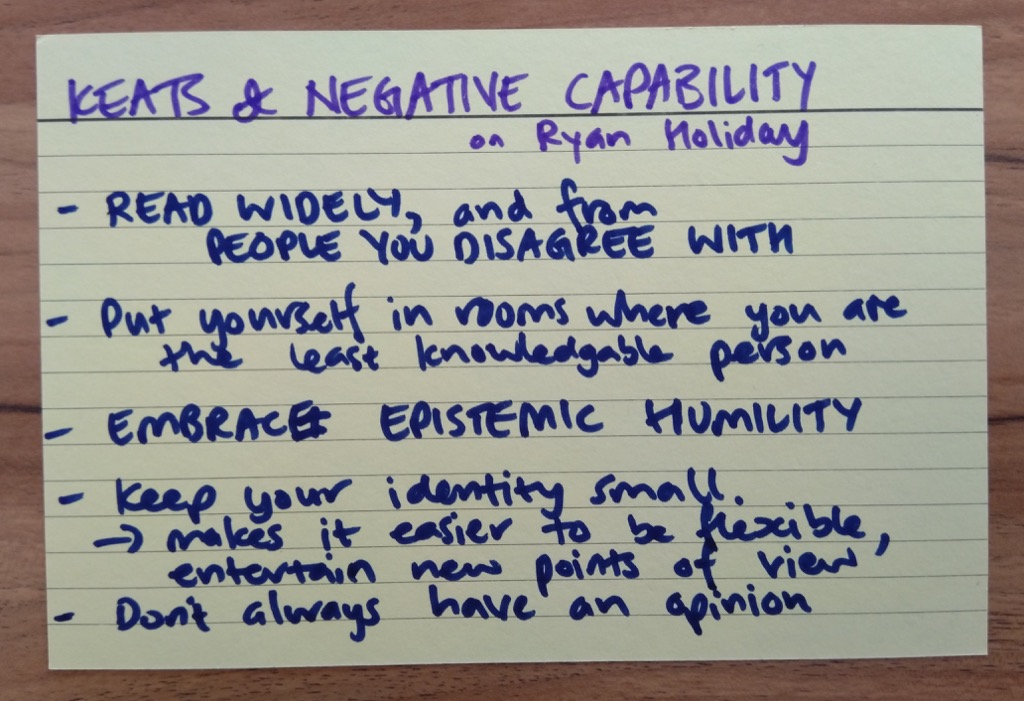 KEATS & NEGATIVE CAPABILITY
on Ryan Holiday
- READ WIDELY, and from
PEOPLE YOU DISAGREE WITH
- Put yourself in rooms where you are
the least knowledgable person
- EMBRACE EPISTEMIC HUMILITY
- Keep your identity small.
→ makes it easier to be flexible,
entertain new points of view
- Don't always have an opinion